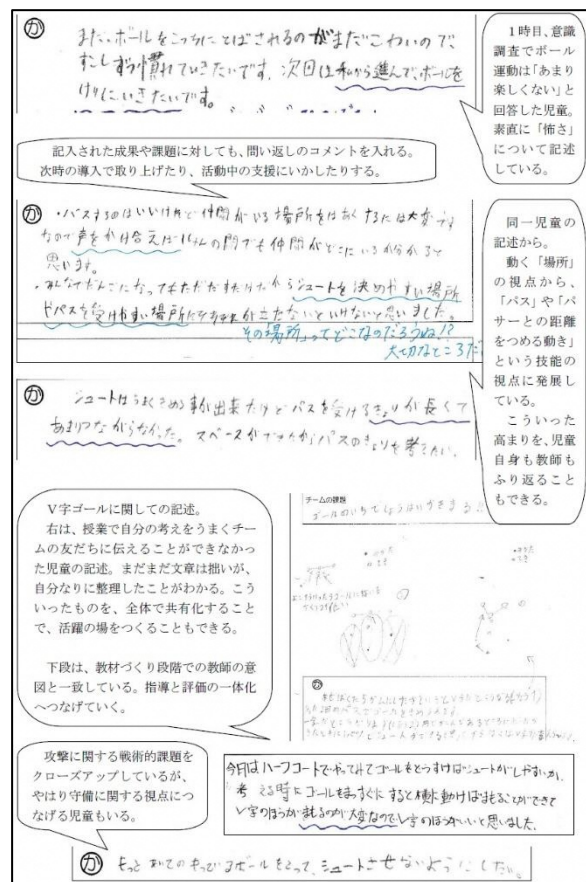 が
また、ボールをこっちにとばされるのがまだこわいので、
すこしずつ慣れていきたいです。次回は私から進んで、ボールを
けりにいきたいです。
１時目、意識
調査でボール
運動は「あまり
楽しくない」と
回答した児童。
素直に「怖さ」
について記述
している。
記入された成果や課題に対しても、問い返しのコメントを入れる。
次時の導入で取り上げたり、活動中の支援にいかしたりする。
が
・パスするのはいいけれど仲間がいる場所をはあくするには大変です
なので声をかけ合えば の間でも仲間がどこにいるか分かると
思います。
・みんなでだんごになっても だからシュートを決めやすい場所
やパスを受けやすい場所に 立たないといけないと思いました。
その場所」ってどこなのだろうね!?
大切なところだ
同一児童の
記述から。
動く「場所」
の視点から、
「パス」や「パ
サーとの距離
をつめる動き」
という技能の
視点に発展し
ている。
こういった
高まりを、児童
自身も教師も
ふり返ること
もできる。
が
シュートはうまくきめる事が出来たけどパスを受けるきょりが長くて
あまりつながらなかった。スペースが パスのきょりを考えたい。
Ｖ字ゴールに関しての記述。
右は、授業で自分の考えをうまくチー
ムの友だちに伝えることができなかっ
た児童の記述。まだまだ文章は拙いが、
自分なりに整理したことがわかる。こう
いったものを、全体で共有化すること
で、活躍の場をつくることもできる。
下段は、教材づくり段階での教師の意
図と一致している。指導と評価の一体化
へつなげていく。
チームの課題
ゴールのいちで
が
攻撃に関する戦術的課題を
クローズアップしているが、
やはり守備に関する視点につ
なげる児童もいる。
今日はハーフコートでやってみてゴールをどうすればシュートがしやすいか、
考える時にゴールをまっすぐにすると横に動けばまもることができて
V字のほうがまもるのが大変なのでV字のほうがいいと思いました。
が
もっと あいての ボールをとって、シュートさせないようにしたい。